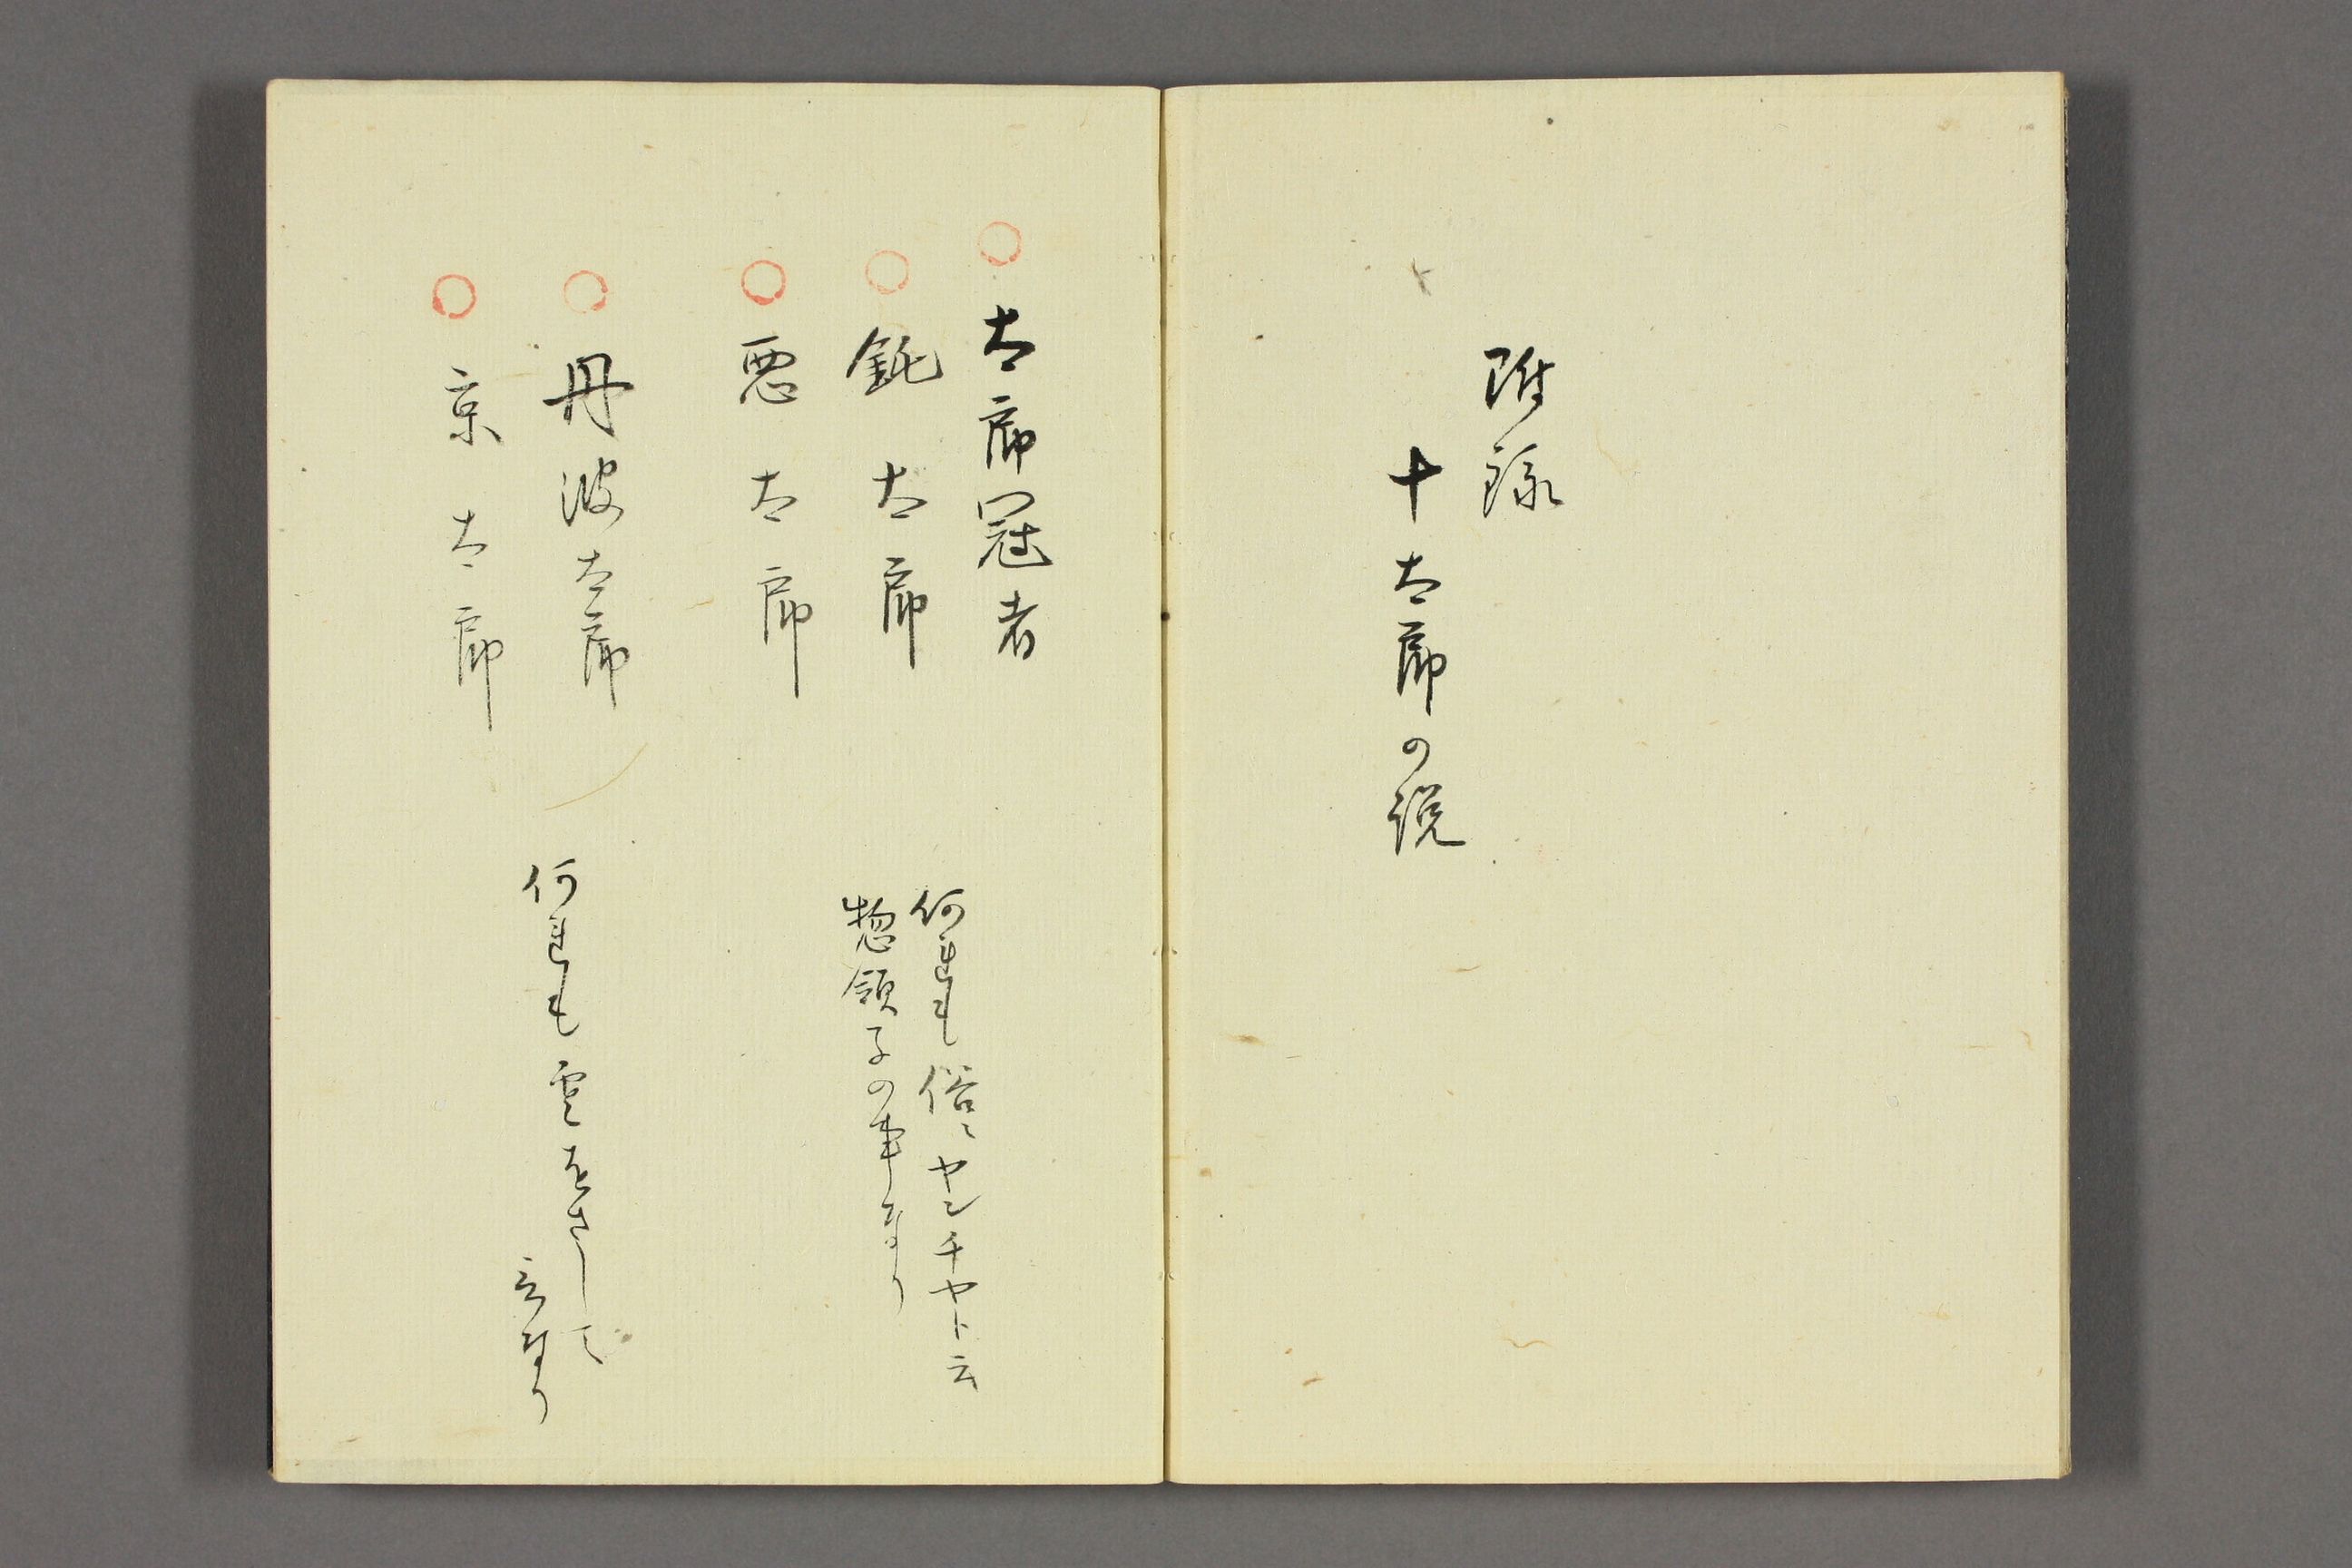 附録
十太郎の説
○太郎冠者
○鈍太郎
○悪太郎
何れも俗ニヤンチヤト云
惣領子の事なり
○丹波太郎
○京太郎
何れも雲をさして
云なり